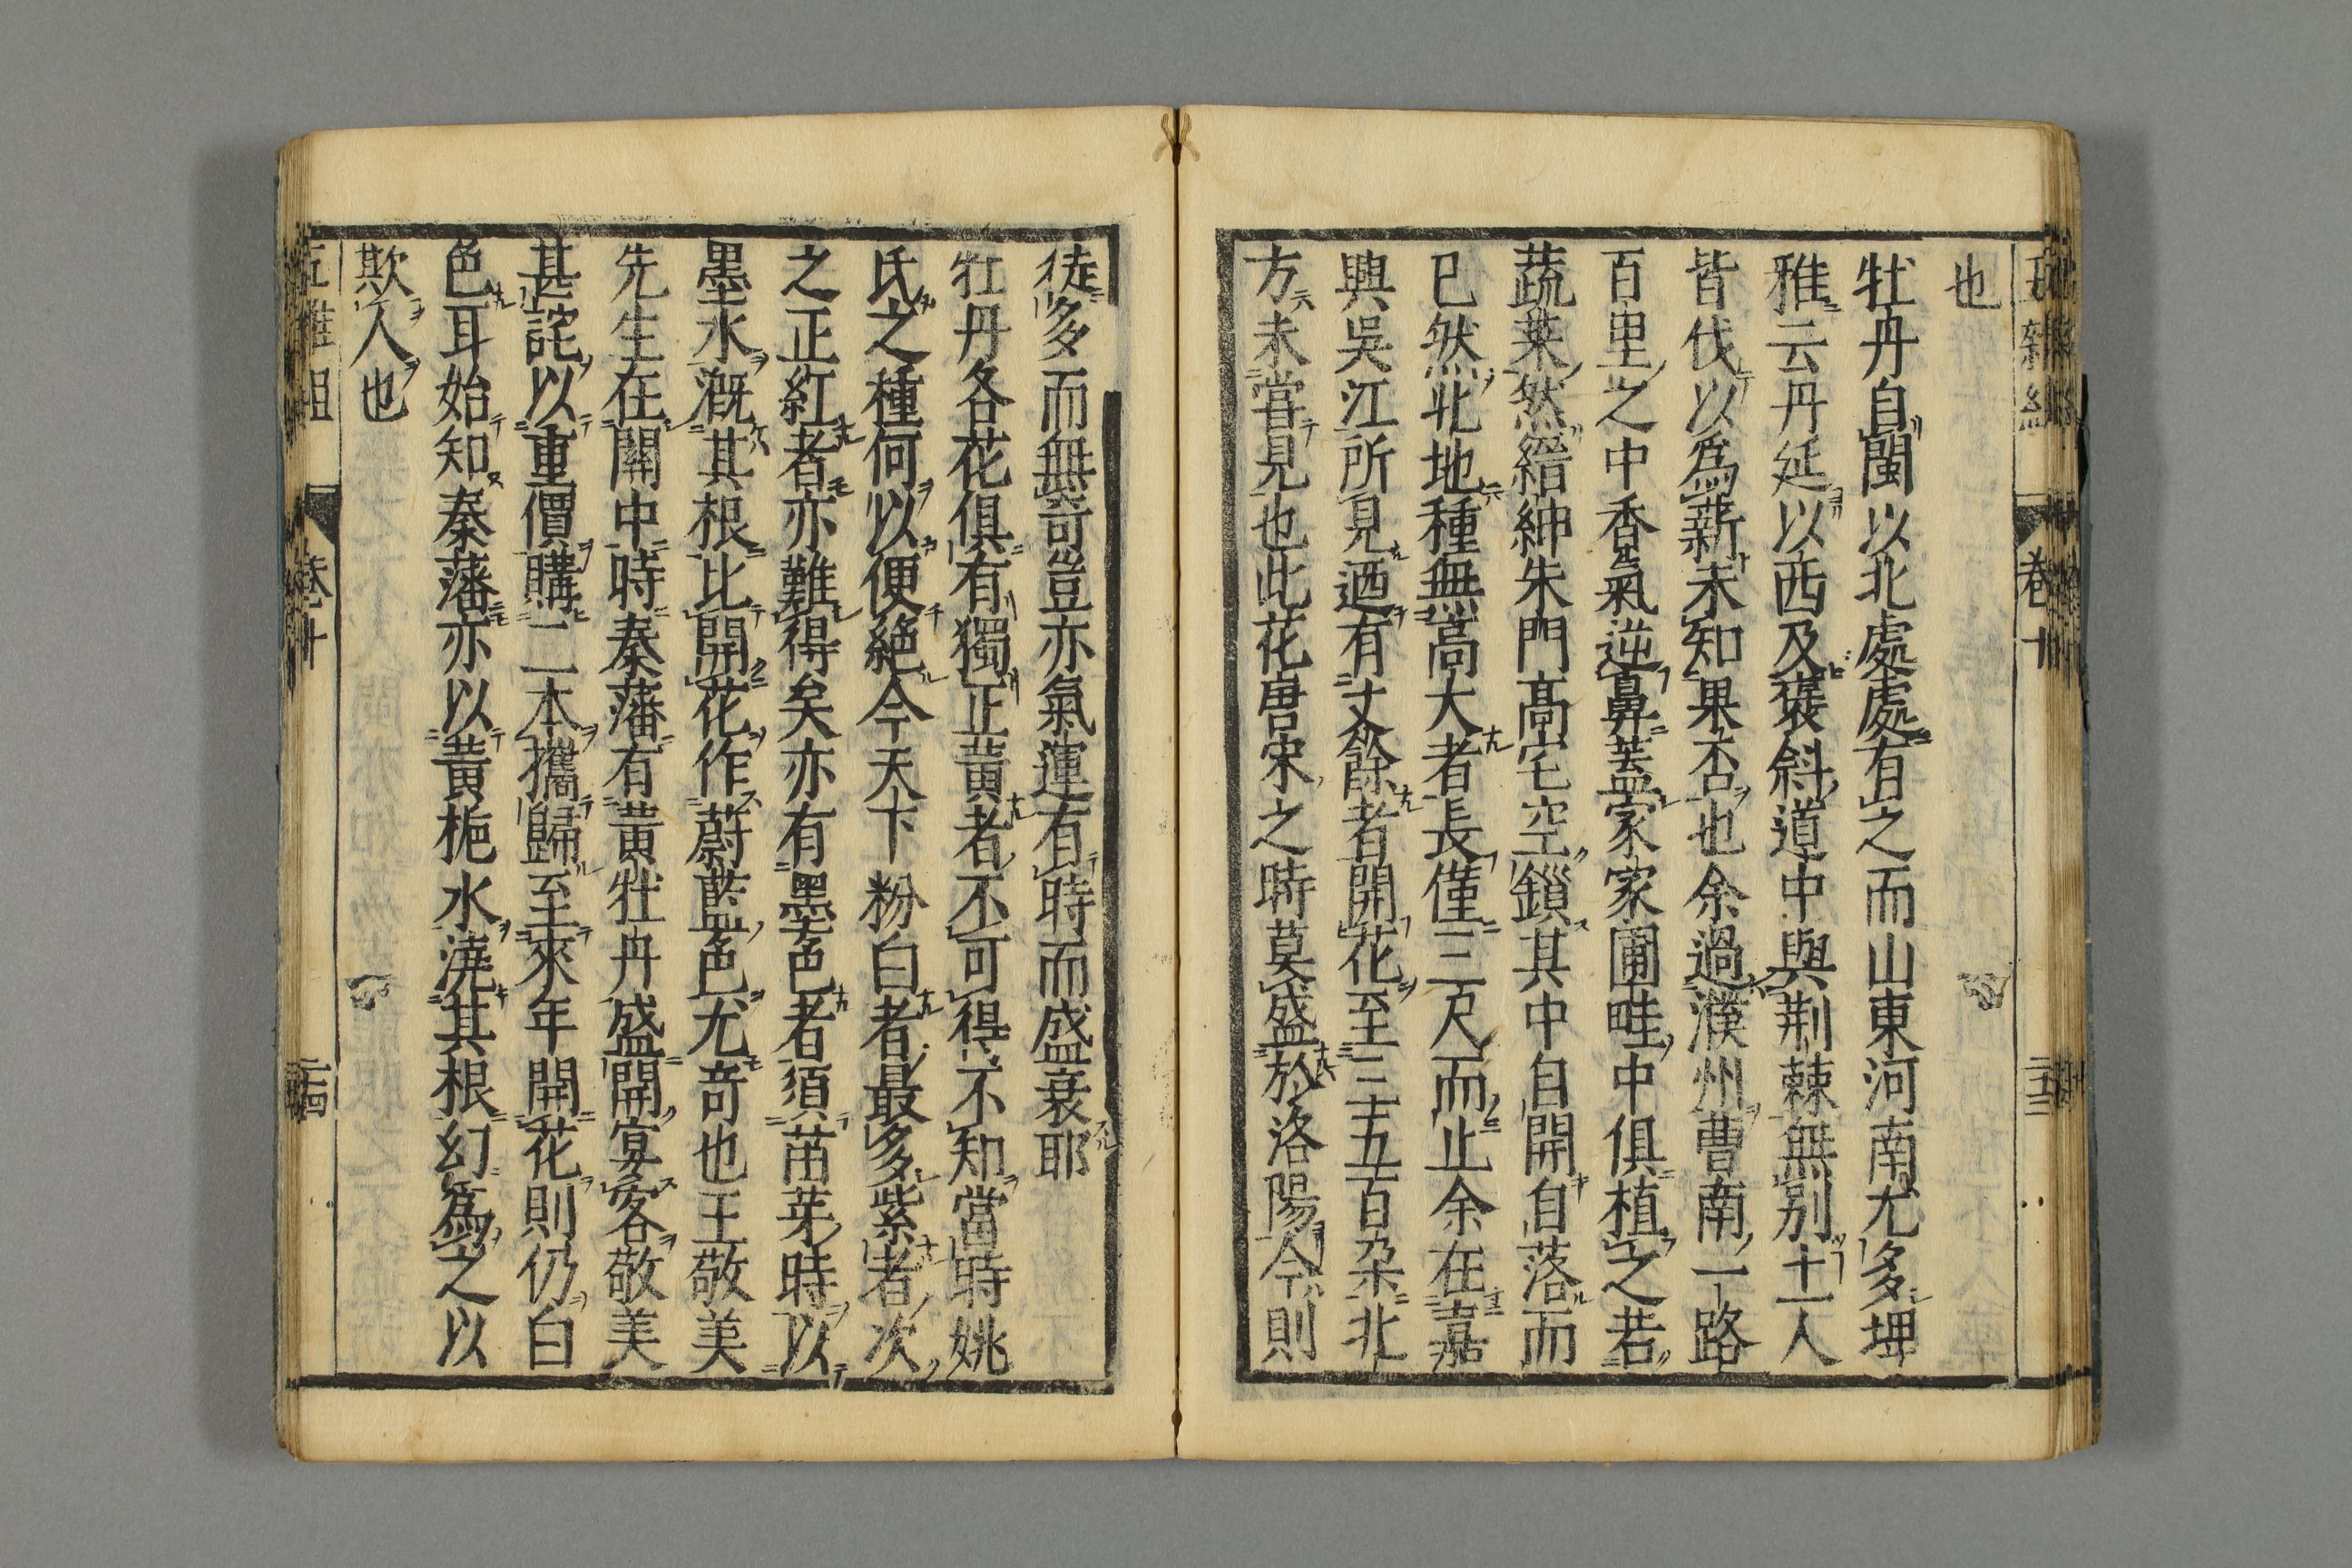 也
牡丹自閩以北處處有之而山東河南尤多埤
雅云丹延以西及襃斜道中與荆棘無别土人
皆伐以爲薪未知果否也余過濮州曹南一路
百里之中香氣逆鼻蓋家家圃畦中俱植之若
蔬菜然縉紳朱門高宅空鎖其中自開自落而
已然北地種無高大者長僅三尺而止余在嘉
興吳江所見廼有丈餘者開花至三五百朶北
方未嘗見也此花唐宋之時莫盛於洛陽今則
徒多而無奇豈亦氣運有時而盛衰耶
牡丹各花俱有獨正黃者不可得不知當時姚
氏之種何以便絕今天下粉白者最多紫者次
之正紅者亦難得矣亦有墨色者須苗芽時以
墨水溉其根比開花作蔚藍色尤奇也王敬美
先生在關中時秦藩有黃牡丹盛開宴客敬美
甚詫以重價購二本攜歸至來年開花則仍白
色耳始知秦藩亦以黃梔水澆其根幻爲之以
欺人也
五雜俎 卷十